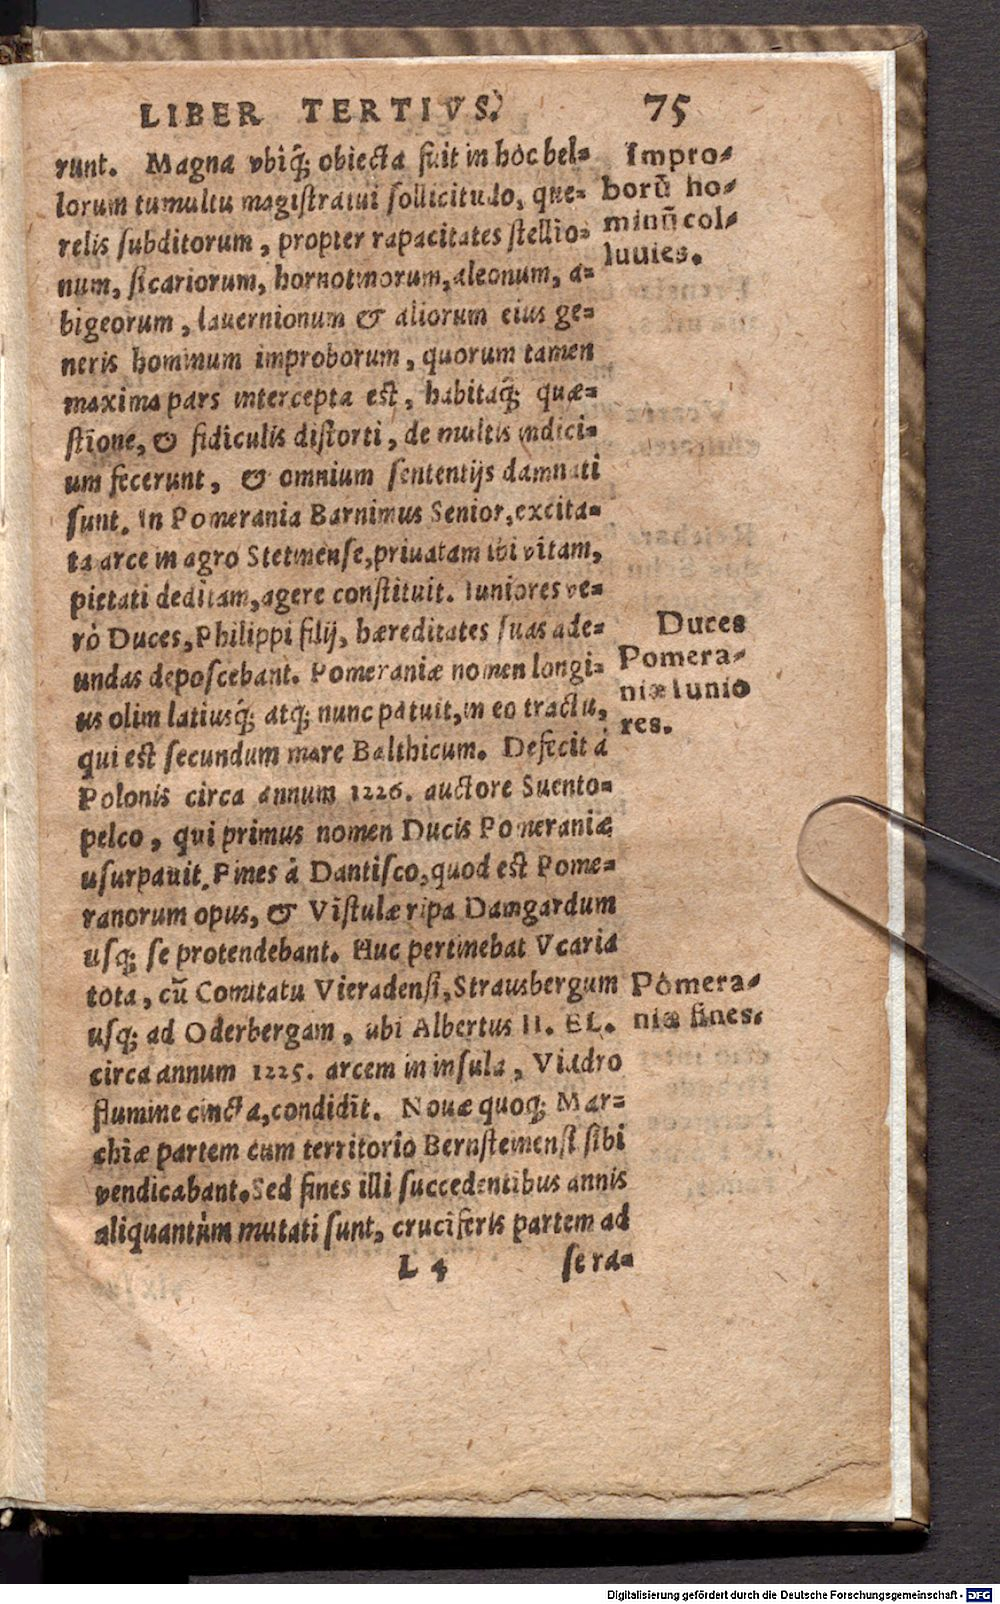 LIBER TERTIVS. 75
runt. Magna vbiq́; obiecta fuit in hoc bel=
lorum tumultu magistratui sollicitudo, que=
relis subditorum, propter rapacitates stellio=
num, sicariorum, hornotinorum, aleonum, a=
bigeorum, lauernionum & aliorum eius ge=
neris hominum improborum, quorum tamen
maxima pars intercepta est, habitaq́; quæ=
stione, & fidiculis distorti, de multis indici=
um fecerunt, & omnium sententijs damnati
sunt. In Pomerania Barnimus Senior, excita=
ta arce in agro Stetinense, priuatam ibi vitam,
pietati deditam, agere constituit. Iuniores ve=
rò Duces, Philippi filij, hæreditates suas ade=
undas deposcebant. Pomeraniæ nomen longi=
us olim latiusq́; atq; nunc patuit, in eo tractu,
qui est secundum mare Balthicum. Defecit á
Polonis circa annum 1226. auctore Suento=
pelco, qui primus nomen Ducis Pomeraniæ
usurpauit. Fines á Dantisco, quod est Pome=
ranorum opus, & Vistulæ ripa Damgardum
usq; se protendebant. Huc pertinebat Vcaria
tota, cū Comitatu Vieradensi, Strausbergum
usq; ad Oderbergam, ubi Albertus II. EL.
circa annum 1225. arcem in insula, Viadro
flumine cincta, condidit. Nouæ quoq; Mar=
chiæ partem cum territorio Bernsteinensi sibi
vendicabant. Sed fines illi succedentibus annis
aliquantùm mutati sunt, cruciferis partem ad
L 4 se ra=
Impro=
borū ho=
minū col=
luuies.
Duces
Pomera=
niæ Iunio
res.
Pomera=
niæ fines.
Digitalisierung gefördert durch die Deutsche Forschungsgemeinschaft - DFG